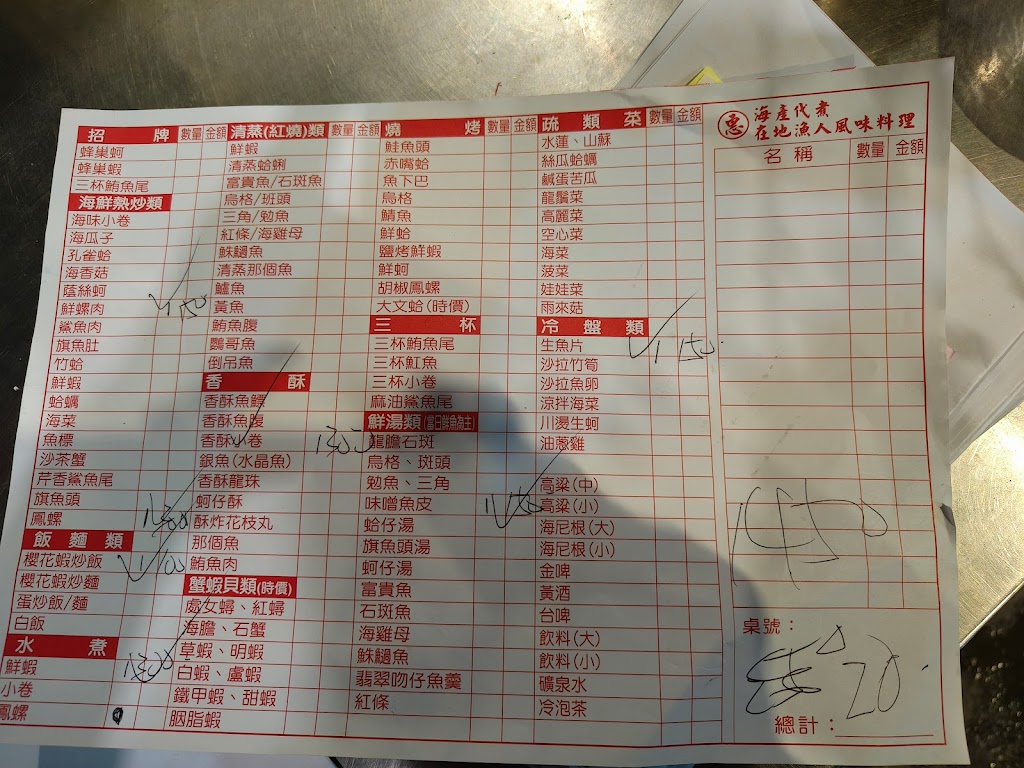 招牌 數量 金額
蜂巢蚵
蜂巢蝦
三杯鮪魚尾
海鮮熱炒類
海味小卷
海瓜子
孔雀蛤
海香菇
蔭絲蚵
鮮螺肉 1 150
鯊魚肉
旗魚肚
竹蛤
鮮蝦
蛤蠣
海菜
魚標
沙茶蟹
芹香鯊魚尾
旗魚頭
鳳螺
飯麵類
櫻花蝦炒飯 1 100
櫻花蝦炒麵
蛋炒飯/麵
白飯
水煮
鮮蝦
小卷
鳳螺
清蒸(紅燒)類 數量 金額
鮮蝦
清蒸蛤蜊
富貴魚/石斑魚
烏格/班頭
三角/勉魚
紅條/海雞母
鮢鮋魚
清蒸那個魚
鱸魚
黃魚
鮪魚腹
鸚哥魚
倒吊魚
香酥
香酥魚鏢
香酥魚腹
香酥小卷
銀魚(水晶魚)
香酥龍珠
蚵仔酥
酥炸花枝丸
那個魚
鮪魚肉
蟹蝦貝類(時價)
處女蟳、紅蟳
海膽、石蟹
草蝦、明蝦
白蝦、盧蝦
鐵甲蝦、甜蝦
胭脂蝦
燒烤 數量 金額
鮭魚頭
赤嘴蛤
魚下巴
烏格
鯖魚
鮮蛤
鹽烤鮮蝦
鮮蚵
胡椒鳳螺
大文蛤(時價)
三杯
三杯鮪魚尾
三杯魟魚
三杯小卷
麻油鯊魚尾
鮮湯類(當日鮮魚為主)
龍膽石斑
烏格、斑頭
勉魚、三角
味噌魚皮
蛤仔湯
旗魚頭湯
蚵仔湯
富貴魚
石斑魚
海雞母
鮢鮋魚
翡翠吻仔魚羹
紅條
疏類菜 數量 金額
水蓮、山蘇
絲瓜蛤蠣
鹹蛋苦瓜
龍鬚菜
高麗菜
空心菜
海菜
菠菜
娃娃菜
雨來菇
冷盤類
生魚片 1 150
沙拉竹筍
沙拉魚卵
涼拌海菜
川燙生蚵
油蔥雞
高粱(中)
高粱(小)
海尼根(大)
海尼根(小)
金啤
黃酒
台啤
飲料(大)
飲料(小)
礦泉水
冷泡茶
惠 海產代煮
在地漁人風味料理
名稱 數量 金額
1450
桌號：
20
總計：